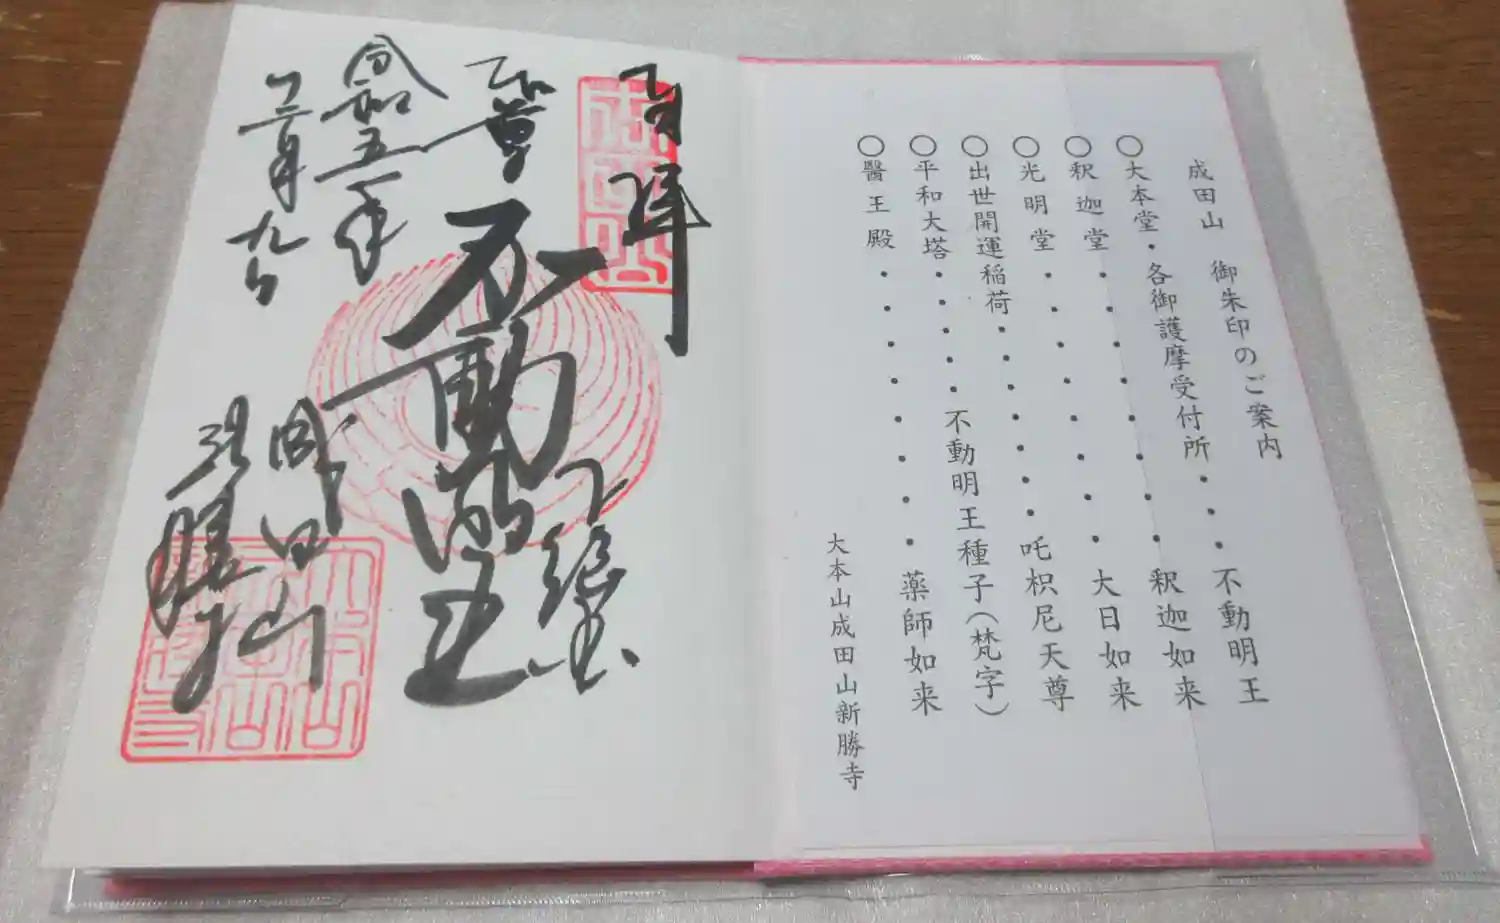 成田山 御朱印のご案内
○大本堂・各御護摩受付所・・・不動明王
○釈迦堂・・・・・・・・釈迦如来
○光明堂・・・・・・・・大日如来
○出世開運稲荷・・・・・・吒枳尼天尊
○平和大塔・・・・不動明王種子(梵字)
○醫王殿・・・・・・・・薬師如来
大本山成田山新勝寺
奉拝
下総國
本尊 不動明王
成田山
新勝寺
令和五年
十二月九日